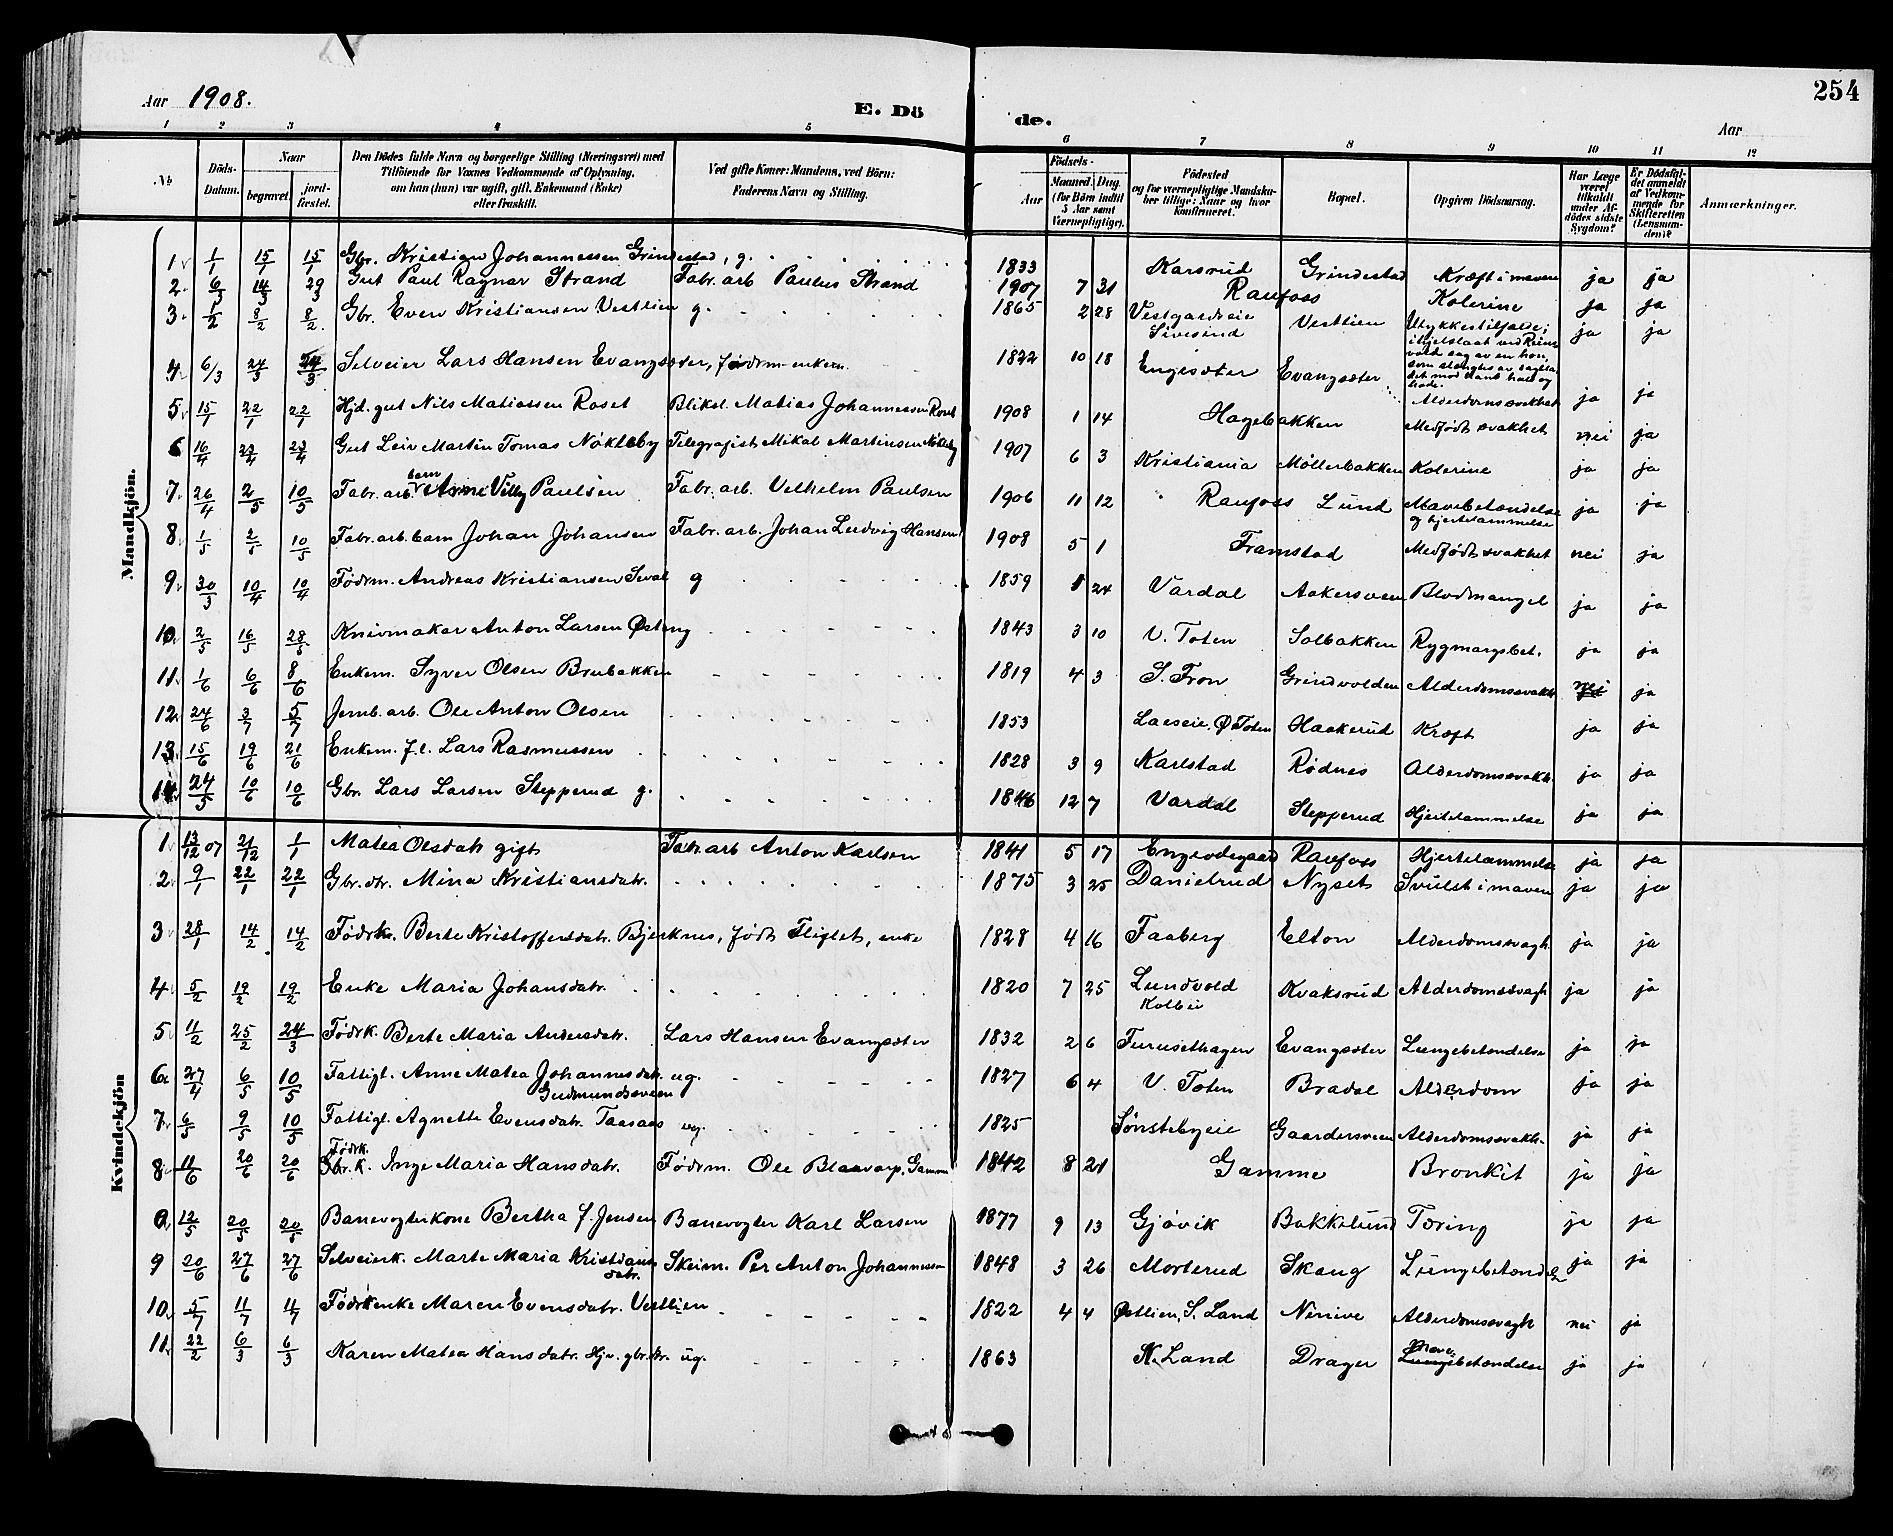 254
Aar 1908.
E. Dö de.
Aar
1 2 3 4 5 6 7 8 9 10 11 12
No.
Döds-Datum.
Naar
begravet.
jord-fæstet.
Den Dödes fulde Navn og borgerlige Stilling (Næringsvei) med Tilföiende for Voxnes Vedkommende af Oplysning, om han (hun) var ugift, gift, Enkemand (Enke) eller fraskilt.
Ved gifte Koner: Mandens, ved Börn: Faderens Navn og Stilling.
Födsels-
Aar
Maaned. Dag.
(for Börn indtil 5 Aar samt Værnepligtige).
Födested og for værnepligtige Mandskaber tillige: Naar og hvor Konfirmeret.
Bopæl.
Opgiven Dödsaarsag.
Har Læge været tilkaldt under Afdödes sidste Sygdom?
Er Dödsfaldet anmeldt af Vedkommende for Skifteretten (Lensmanden)?
Anmærkninger.
Mandkjön.
1 1/1 15/1 15/1 Gbr. Kristian Johannessen Grindestad, g. 1833 Karsrud Grindestad Kræft i maven ja ja
2 6/3 14/3 29/3 Gut Paul Ragnar Strand Fabr. arb. Paulus Strand 1907 7 31 Raufoss Kolerine ja ja
3 1/2 8/2 8/2 Gbr. Even Kristiansen Vestlien g. 1865 2 28 Vestgardseie Sivesind Vestlien Ulykkestilfælde; ihjelslaat ved Reinsvold sag av en hon, som slængtes av sagbladet mod hans hals og hode. ja ja
4 6/3 24/3 24/3 Selveier Lars Hansen Evangsæter, födrm. enkem. 1822 10 18 Engesæter Evangsæter Alderdomssvakhet ja ja
5 15/1 22/1 22/1 Hjd. gut Nils Matiassen Roset Bliksl. Matias Johannessen Roset 1908 1 14 Hagebakken Medfødt svakhet nei ja
6 16/4 23/4 23/4 Gut Leiv Martin Tomas Nøkleby Telegrafist Mikal Martinsen Nøkleby 1907 6 3 Kristiania Møllerbakken Kolerine ja ja
7 26/4 2/5 10/5 Fabr. arb. barn Arne Villy Paulsen Fabr. arb. Vilhelm Paulsen 1906 11 12 Raufoss Lund Mavebetændelse og hjertelammelse ja ja
8 1/5 2/5 10/5 Fabr. arb. barn Johan Johansen Fabr. arb. Johan Ludvig Hansen 1908 5 1 Framstad Medfødt svakhet nei ja
9 30/3 10/4 10/4 Födrm. Andreas Kristiansen Seval g 1859 5 24 Vardal Aakersveen Blodmangel ja ja
10 2/5 16/5 28/5 Knivmaker Anton Larsen Østeng 1843 3 10 V. Toten Solbakken Rygmargsbet. ja ja
11 1/6 6/6 8/6 Enkem. Syver Olsen Brubakken 1819 4 3 S. Fron Grindvolden Alderdomssvakh. nei ja
12 24/6 3/7 5/7 Jernb. arb. Ole Anton Olsen 1853 Laeseie, Ø Toten Haakerud Kræft ja ja
13 15/6 19/6 21/6 Enkem. f.l. Lars Rasmussen 1828 3 9 Karlstad Rødnes Alderdomssvakh. ja ja
14 24/5 10/6 10/6 Gbr. Lars Larsen Stepperud g. 1846 12 7 Vardal Stepperud Hjertelammelse ja ja
Kvindekjön
1 13/12 07 21/12 1/1 Matea Olsdatr gift Fabr. arb Anton Karlsen 1841 5 17 Engeodegaard Raufoss Hjertelammelse ja ja
2 9/1 22/1 22/1 Gbr. dtr. Mina Kristiansdatr. 1875 3 25 Danielrud Nyset Svulst i maven ja ja
3 28/1 14/2 14/2 Födrk. Berte Kristoffersdatr. Bjerknes, født Fliglet, enke 1828 4 16 Faaberg Elton Alderdomssvagh. ja ja
4 5/2 19/2 19/2 Enke Maria Johansdatr. 1820 7 25 Lundvold Kolbu Kvaksrud Alderdomssvagh ja ja
5 11/2 25/2 24/3 Födrk. Berte Maria Andersdatr. Lars Hansen Evangsæter 1832 2 6 Furusethagen Evangsæter Lungebetændelse ja ja
6 27/4 6/5 10/5 Fattigl. Anne Matea Johannesdatr. Gudmundsveen ug. 1827 6 4 V. Toten Bradal Alderdom ja ja
7 6/5 9/5 10/5 Fattigl. Agnette Evensdatr. Taasaas ug. 1825 Sønstebyeie Gaardersveen Alderdomssvakh. ja ja
8 11/6 20/6 20/6 Födrk. Gbr. k. Inge Maria Hansdatr. Födrm. Ole Blaavarp, Gamme 1842 8 21 Gamme Bronkit ja ja
9 12/5 20/5 20/5 Banevogterkone Bertha f. Jensen Banevogter Karl Larsen 1877 9 13 Gjøvik Bakkelund Tæring ja ja
9 20/6 27/6 27/6 Selveierk. Marte Maria Kristiansdatr. Skeim. Per Anton Johannessen 1848 3 26 Morterud Skaug Lungebetændelse ja ja
10 5/7 11/7 11/7 Födrkenke Maren Evensdatr. Vestlien 1822 4 4 Østlien, S. Land Ninive Alderdomssvagh nei ja
11 22/2 6/3 6/3 Karen Matea Hansdatr. Hjv. gbr. dr. ug. 1863 N. Land Drager Mave Lungebetændelse ja ja